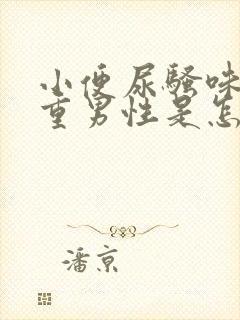 小便尿骚味
重男性是怎
潘京